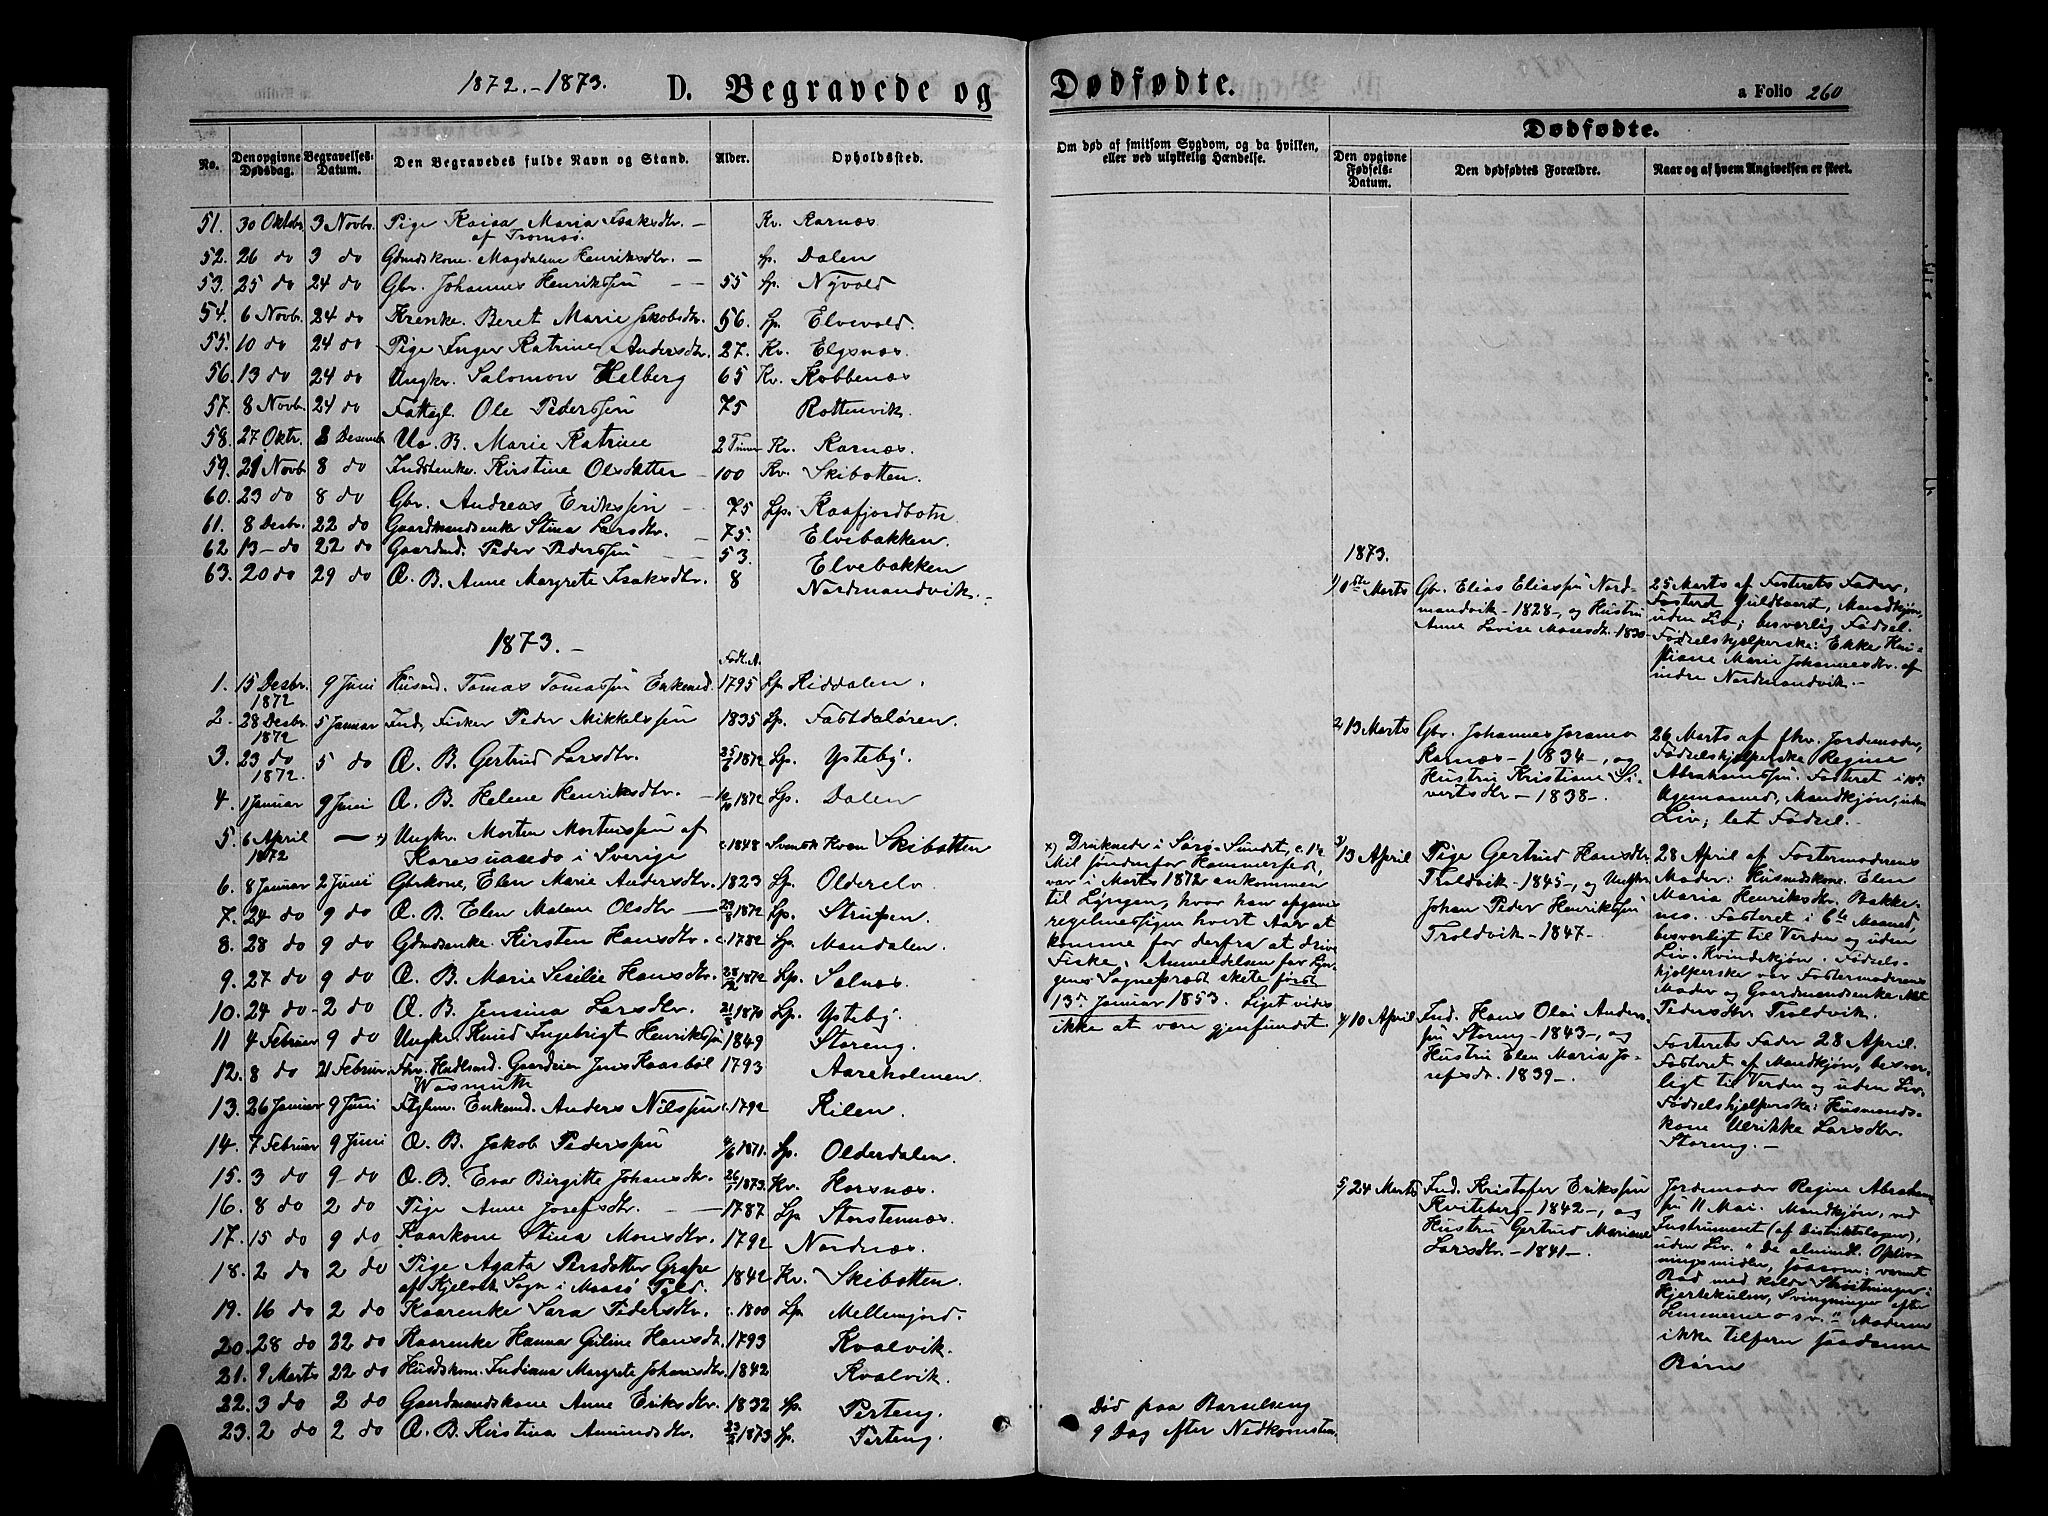 1872.-1873. D. Begravede og
No. Den opgivne Dødsdag. Begravelses-Datum. Den Begravedes fulde Navn og Stand. Alder. Opholdssted.
51. 30 Oktobr 3 Novbr. Pige Kaisa Maria Isaksdtr. - Kv. Karnæs
af Tromsø.
52. 26 do 3 do Gdmdskone. Magdalena Henriksdtr. - Lp. Dalen
53. 25 do 24 do Gbr. Johannes Henrikssøn - - 55 Lp. Nyvold
54. 6 Novb. 24 do Krenke. Beret Marie Jakobsdtr. 56. Lp. Elvevold.
55. 10 do 24 do Pige Inger Katrine Andersdtr. 27. Kv. Elgsnæs.
56. 13 do 24 do Ungkr. Salomon Helberg 65 Kv. Kobbenæs
57. 8 Novb. 24 do Fattegl. Ole Pederssøn 75 Rottenvik.
58. 27 Oktr. 8 Desemb. Uæ. B. Marie Katrine 2 Timer Kv. Karnæs.
59. 21 Novb. 8 do Indstenke. Kirstine Olsdatter - 100 Kv. Skibotten.
60. 23 do 8 do Gbr. Andreas Erikssøn - 75 Lp. Kaafjordbotn
61. 8 Desbr. 22 do Gaardmandsenke Stina Larsdtr. 75. Elvebakken.
62 13 - do 22 do Gaardmd. Peder Pederssøn - 53. Elvebakken
63. 20 do 29 do Æ. B. Anne Margrete Isaksdtr. 8 Nordmandvik.
1873. -
Født. A.
1. 15 Desbr. 9 Juni Husmd. Tomas Tomassøn Enkemd. 1795 Lp Kiddalen.
1872
2. 28 Desbr. 5 Januar Ind., Fisker Peder Mikkelssøn 1835 Lp. Fastdaløren.
1872
3. 23 do 5 do Æ. B. Gertrud Larsdtr. 25/6 1872 Lp. Ysteby.
1872.
4. 1 Januar 9 Juni Æ. B. Helene Henriksdtr. - 1872 Lp. Dalen
5. 6 April — x) Ungkr. Morten Mortenssøn af c. 1848 Svensk Kven Skibotten
1872 Karesuando i Sverige
6. 8 Januar 2 Juni Gbrkone, Elen Marie Andersdtr. 1823 Lp. Olderelv.
7. 24 do 9 do Æ. B. Elen Malene Olsdtr — 1872 Lp. Strupen.
8. 28 do 9 do Gdmdsenke. Kirsten Hansdtr. c. 1782 Lp. Mandalen.
9. 27 do 9 do Æ. B. Marie Sesilie Hansdtr. 28/2 1872 Lp. Salnæs.
10. 24 do - 2 do Æ. B. Jensina Larsdtr. 1870 Lp. Ysteby.
11 4 Februar 9 do Ungkr. Knud Ingebrigt Henrikssøn 1849 Storeng.
12. 8 do 21 Februar Gaardeier Jens Kaasbøl 1793 Aareholmen.
Wasmuth
13. 26 Januar 9 Juni Enkemd. Anders Nilssøn c. 1792 Kilen.
14. 7 Februar 9 Juni Æ. B. Jakob Pederssøn 4/6 1871. Lp. Olderdalen.
15. 3 do 9 - do Æ. B. Eva Birgitte Johansdtr. 1873. Kv. Horsnæs.
16. 8 do 2 do Pige Anne Josefsdtr. - 1787 Lp. Storstennæs.
17. 15 do 9 do Kaarkone Stina Monsdtr. 1792 Nordnæs.
18. 2 do 2 do Pige Agata Persdotter Grape 1842 Kv. Skibotten.
af Kjelvik Sogn i Maasø Pgld.
19. 16 do 2 do Kaarenke Sara Pedersdtr. c. 1800 Lp. Mellemjord.
20. 28 do 22 do Kaarenke Hanna Guline Hansdtr. 1793 Kvalvik.
21. 9 Marts 22 do Husdskone. Indiana Margrete Johansdtr. 1842 Kvalvik.
22. 3 do 2 do Gaardmandskone Anne Eriksdtr. 1832 Lp. Perteng.
23. 2 do 2 do Æ. B. Kirstina Amundsdtr. 1873 Lp. Perteng.
Dødfødte. a Folio 260
Om død af smitsom Sygdom, og da hvilken, eller ved ulykkelig Hændelse.
Dødfødte.
Den opgivne Fødsels-Datum. Den dødfødtes Forældre. Naar og af hvem Angivelsen er skeet.
x) Druknede i Sørø-Sundet, c. 1½
Mil søndenfor Hammerfest,
var i Marts 1872 ankommen
til Lyngen, hvor han
regelmessigen hvert Aar at
komme for derfra at drive
Fiske. Anmeldelsen for Lyn-
gens Sogneprest skete først
13de Januar 1853. Liget vides
ikke at være gjenfundet.
Død paa Barselseng
9 Dag efter Nedkomsten
1873.
1) Marts Gbr. Elias Eliassøn Nord-
mandvik - 1828 -, og Hustru
Anne Lovise Mosesdtr. 1830 -
25 Marts af Fosterets Fader,
Fosteret fuldbaaret, Mandkjøn,
uden Liv; besverlig Fødsel.
Fødselshjelperske: Enke
Marie Johannesdtr. af
indre Nordmandvik. -
2) 13 Marts Gbr. Johannes Joramo
Karnæs - 1834 -, og
Hustru Kristiane Si-
vertsdtr - 1838 -.
26 Marts af fhv. Jordemoder,
Fødselshjelperske Regine
Abrahamssøn. Fosteret i 10de
Ugemaaned, Mandkjøn, uden
Liv; let Fødsel. -
3) 13 April Pige Gertrud Hansdtr.
Troldvik - 1845 -, og Ungkr.
Johan Peder Henrikssøn
Troldvik - 1847 -
28 April af Fostermoderens
Moder: Husmdskone. Elen
Maria Henriksdtr. Bakke-
næs. Fosteret i 6te Maaned,
besverligt til Verden og uden
Liv - Kvindekjøn. Fødsels-
hjelperske var Fostermoderens
Moder og Gaardmandsenke
Pedersdtr. Troldvik.
4) 10 April Ind. Hans Olai Anders-
søn Storeng - 1843 -, og
Hustru Elen Maria Jo-
sefsdtr. 1839 -.
Fosterets Fader 28 April.
Fosteret af Mandkjøn, besver-
ligt til Verden og uden Liv.
Fødselshjelperske: Husmands-
kone Ulrikke Larsdtr.
Storeng. -
5) 24 Marts Ind. Kristofer Erikssøn
Kviteberg - 1842 -, og
Hustru Gertrud Mariane
Larsdtr. - 1841 -.
Jordemoder Regine Abraham-
søn 11 Mai. Mandkjøn, ved
Instrument (af Distriktslægen),
uden Liv. "De almindl. Opliv-
ningsmidler, saasom: varmt
Bad med kolde
Hjertekulen, Svingninger efter
Lemmerne o s v." Moderen
ikke tilforn
Børn